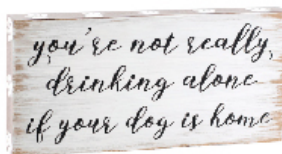 you're not really,
drinking alone
if your dog is home